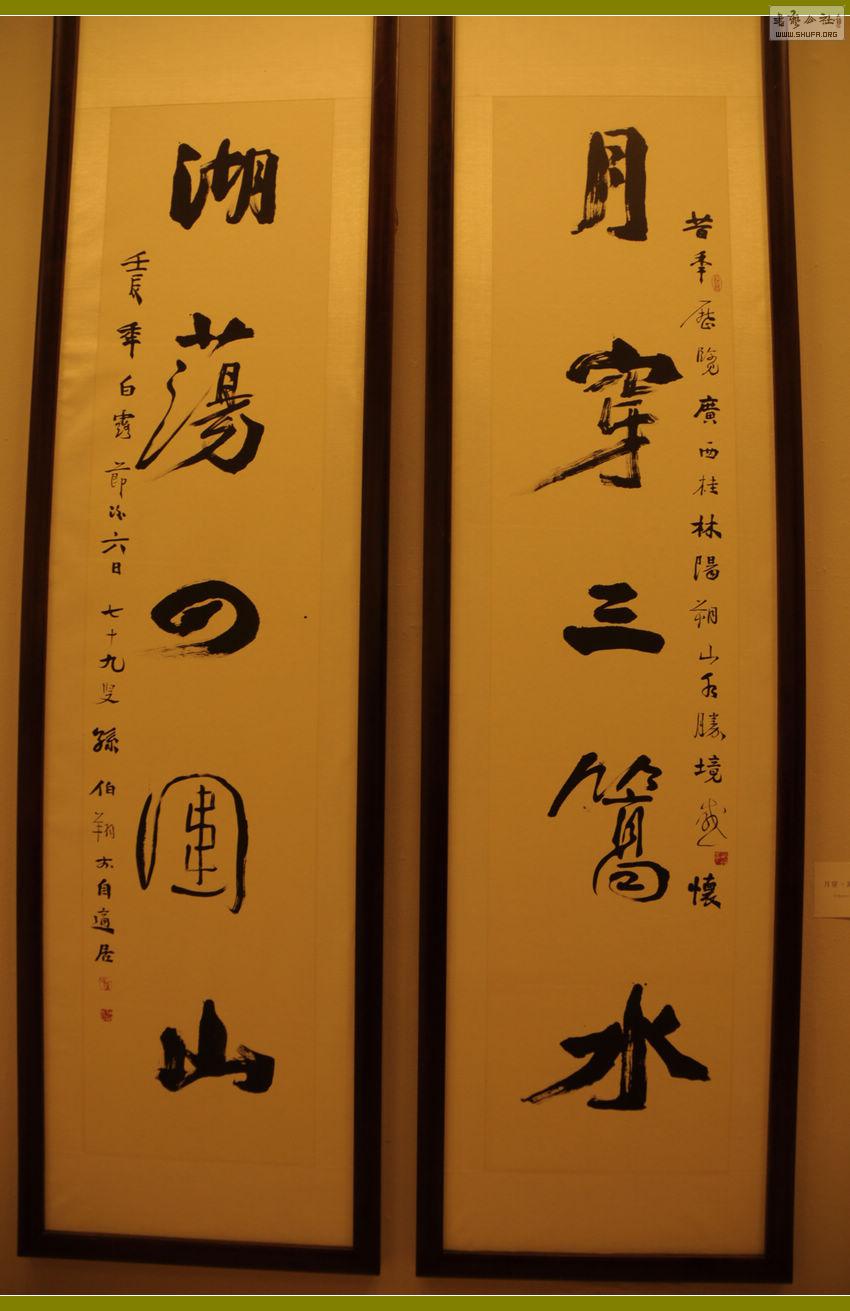 月穿三篙水
昔年歷覽廣西桂林陽朔山水勝境感懷
湖蕩四圍山
壬辰年白露節後六日七十九叟孫伯翔於自適居
WWW.SHUFA.ORG